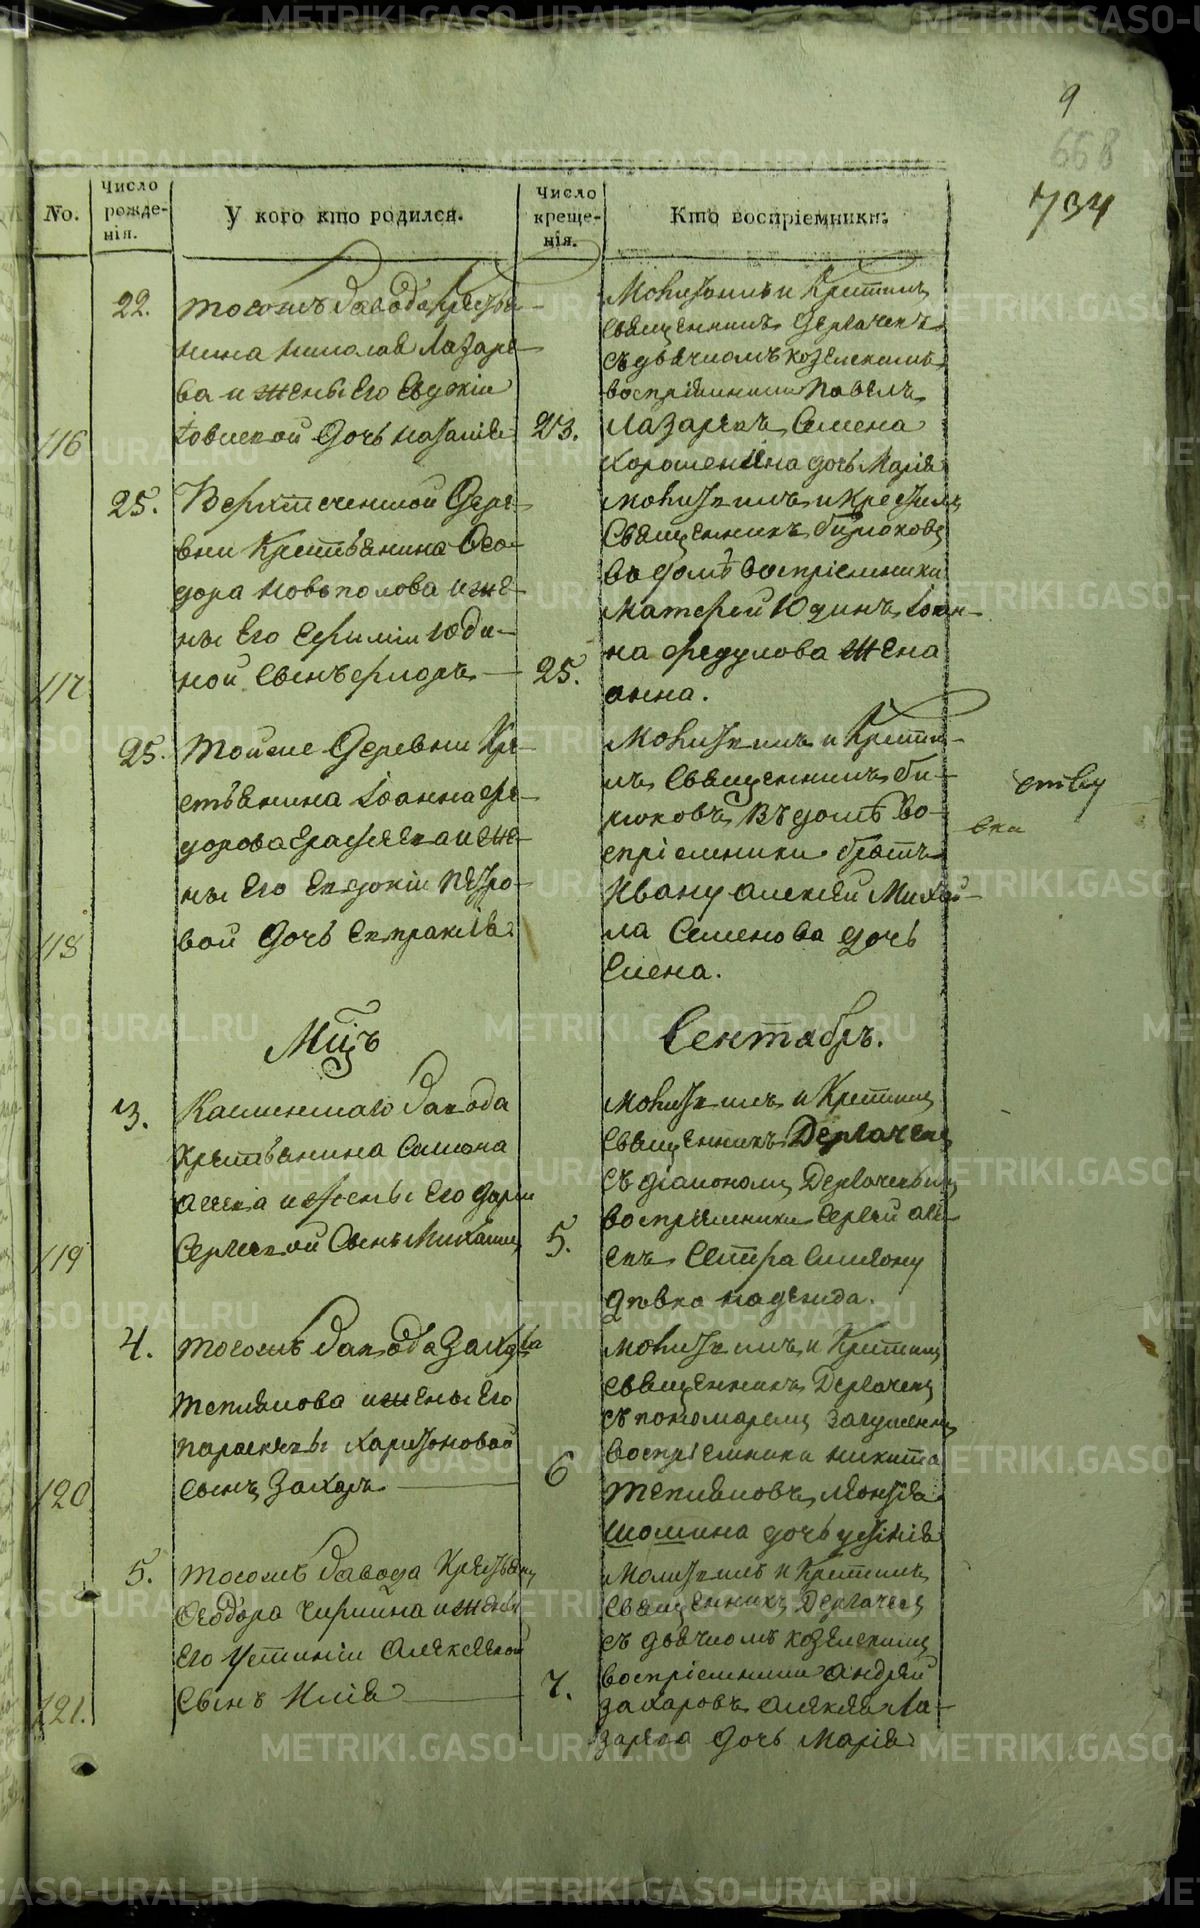 9
668
734
No.
Число рожде-нія.
У кого кто родился.
Число креще-нія.
Кто воспріемники.
22.
тогожъ завода Крестья-
нина Николая Лазаре-
ва и жены Его Евдокіи
Іовлевой Дочь Наталія
116
23.
Молитвилъ и Крестилъ
священникъ Дергачевъ
съ дьячкомъ Козелскимъ
воспріемники Павелъ
Лазаревъ Семена
Хорошенина дочь Марія
25.
Верхтеченской Дере-
вни Крестьянина Ѳео-
дора Новополова и же-
ны Его Ефиміи Юди-
ной Сынъ Флоръ
117
25.
Молитвилъ и Крестилъ
Священникъ Бирюковъ
въ домѣ воспріемники
Матфей Юдинъ Іоан-
на Федулова жена
анна.
25.
Тойже Деревни Кре-
стьянина Іоанна Фе-
дорова и же-
ны Его Евдокіи Петро-
вой Дочь Евпраксія
118
Молитвилъ и Крести-
лъ Священникъ Би-
рюковъ въ домѣ Во-
спріемники братъ
Ивану алексѣй Михай-
ла Семенова дочь
Елена.
Мцъ
Сентябрь.
3.
Каслинскаго Завода
Крестьянина Симеона
и жены Его Дарьи
Сергеевой Сынъ Михаилъ
119
5.
Молитвилъ и Крестилъ
Священникъ Дергачевъ
съ діакономъ Дергачевымъ
воспріемники Сергей
Сестра Симеону
дѣвка надежда.
4.
тогожъ завода Захара
Теплякова и жены Его
параскевы Харитоновой
сынъ Захаръ
120
6
Молитвилъ и Крестилъ
священникъ Дергачевъ
съ пономаремъ
Воспріемники никита
Тепляковъ Леонтія
Шошина дочь
5.
тогожъ завода Крестьян.
Ѳеодора Чирлина и жены
Его Устиніи Алексеевой
Сынъ Илія
121.
7.
Молитвилъ и Крестилъ
Священникъ Дергачевъ
съ дьячкомъ Козелскимъ
воспріемники андрей
захаровъ алексея Ла-
зарева дочь Марія
METRIKI.GASO-URAL.RU